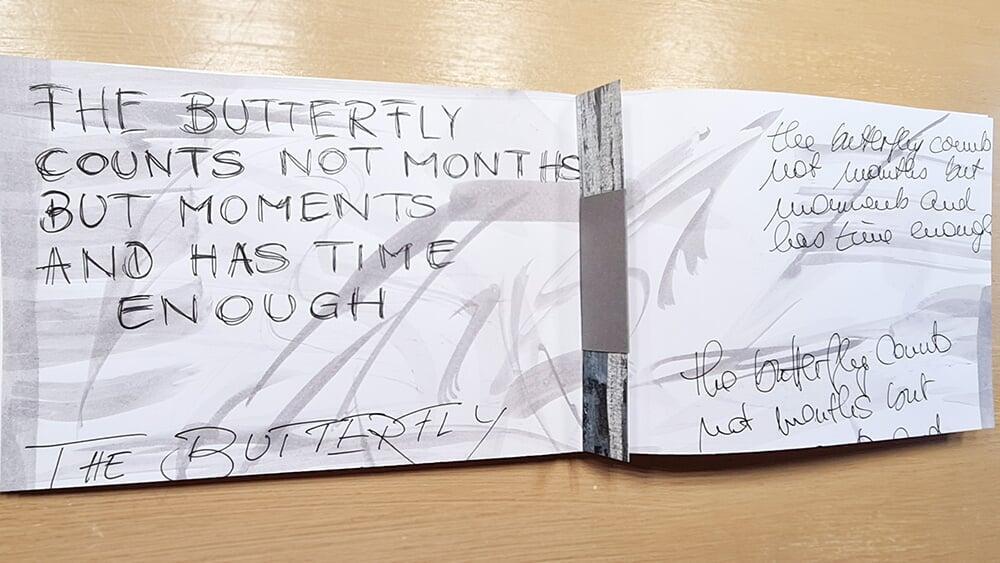 THE BUTTERFLY
COUNTS NOT MONTHS
BUT MOMENTS
AND HAS TIME
ENOUGH
THE BUTTERFLY
the butterfly counts
not months but
moments and
has time enough
the butterfly counts
not months but
and